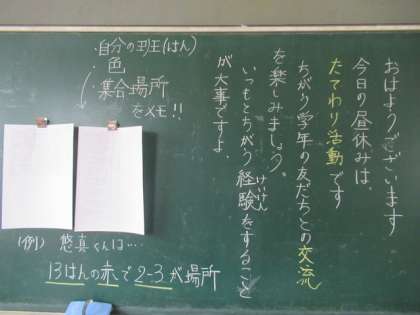 おはようございます
今日の昼休みは、
たてわり活動です
ちがう学年の友だちとの交流
を楽しみましょう。
いつもとちがう経験をすること
けいけん
が大事ですよ。
・自分の班(はん)
・色
・集合場所
をメモ!!
(例) 悠真くんは…
13はんの赤で2-3が場所